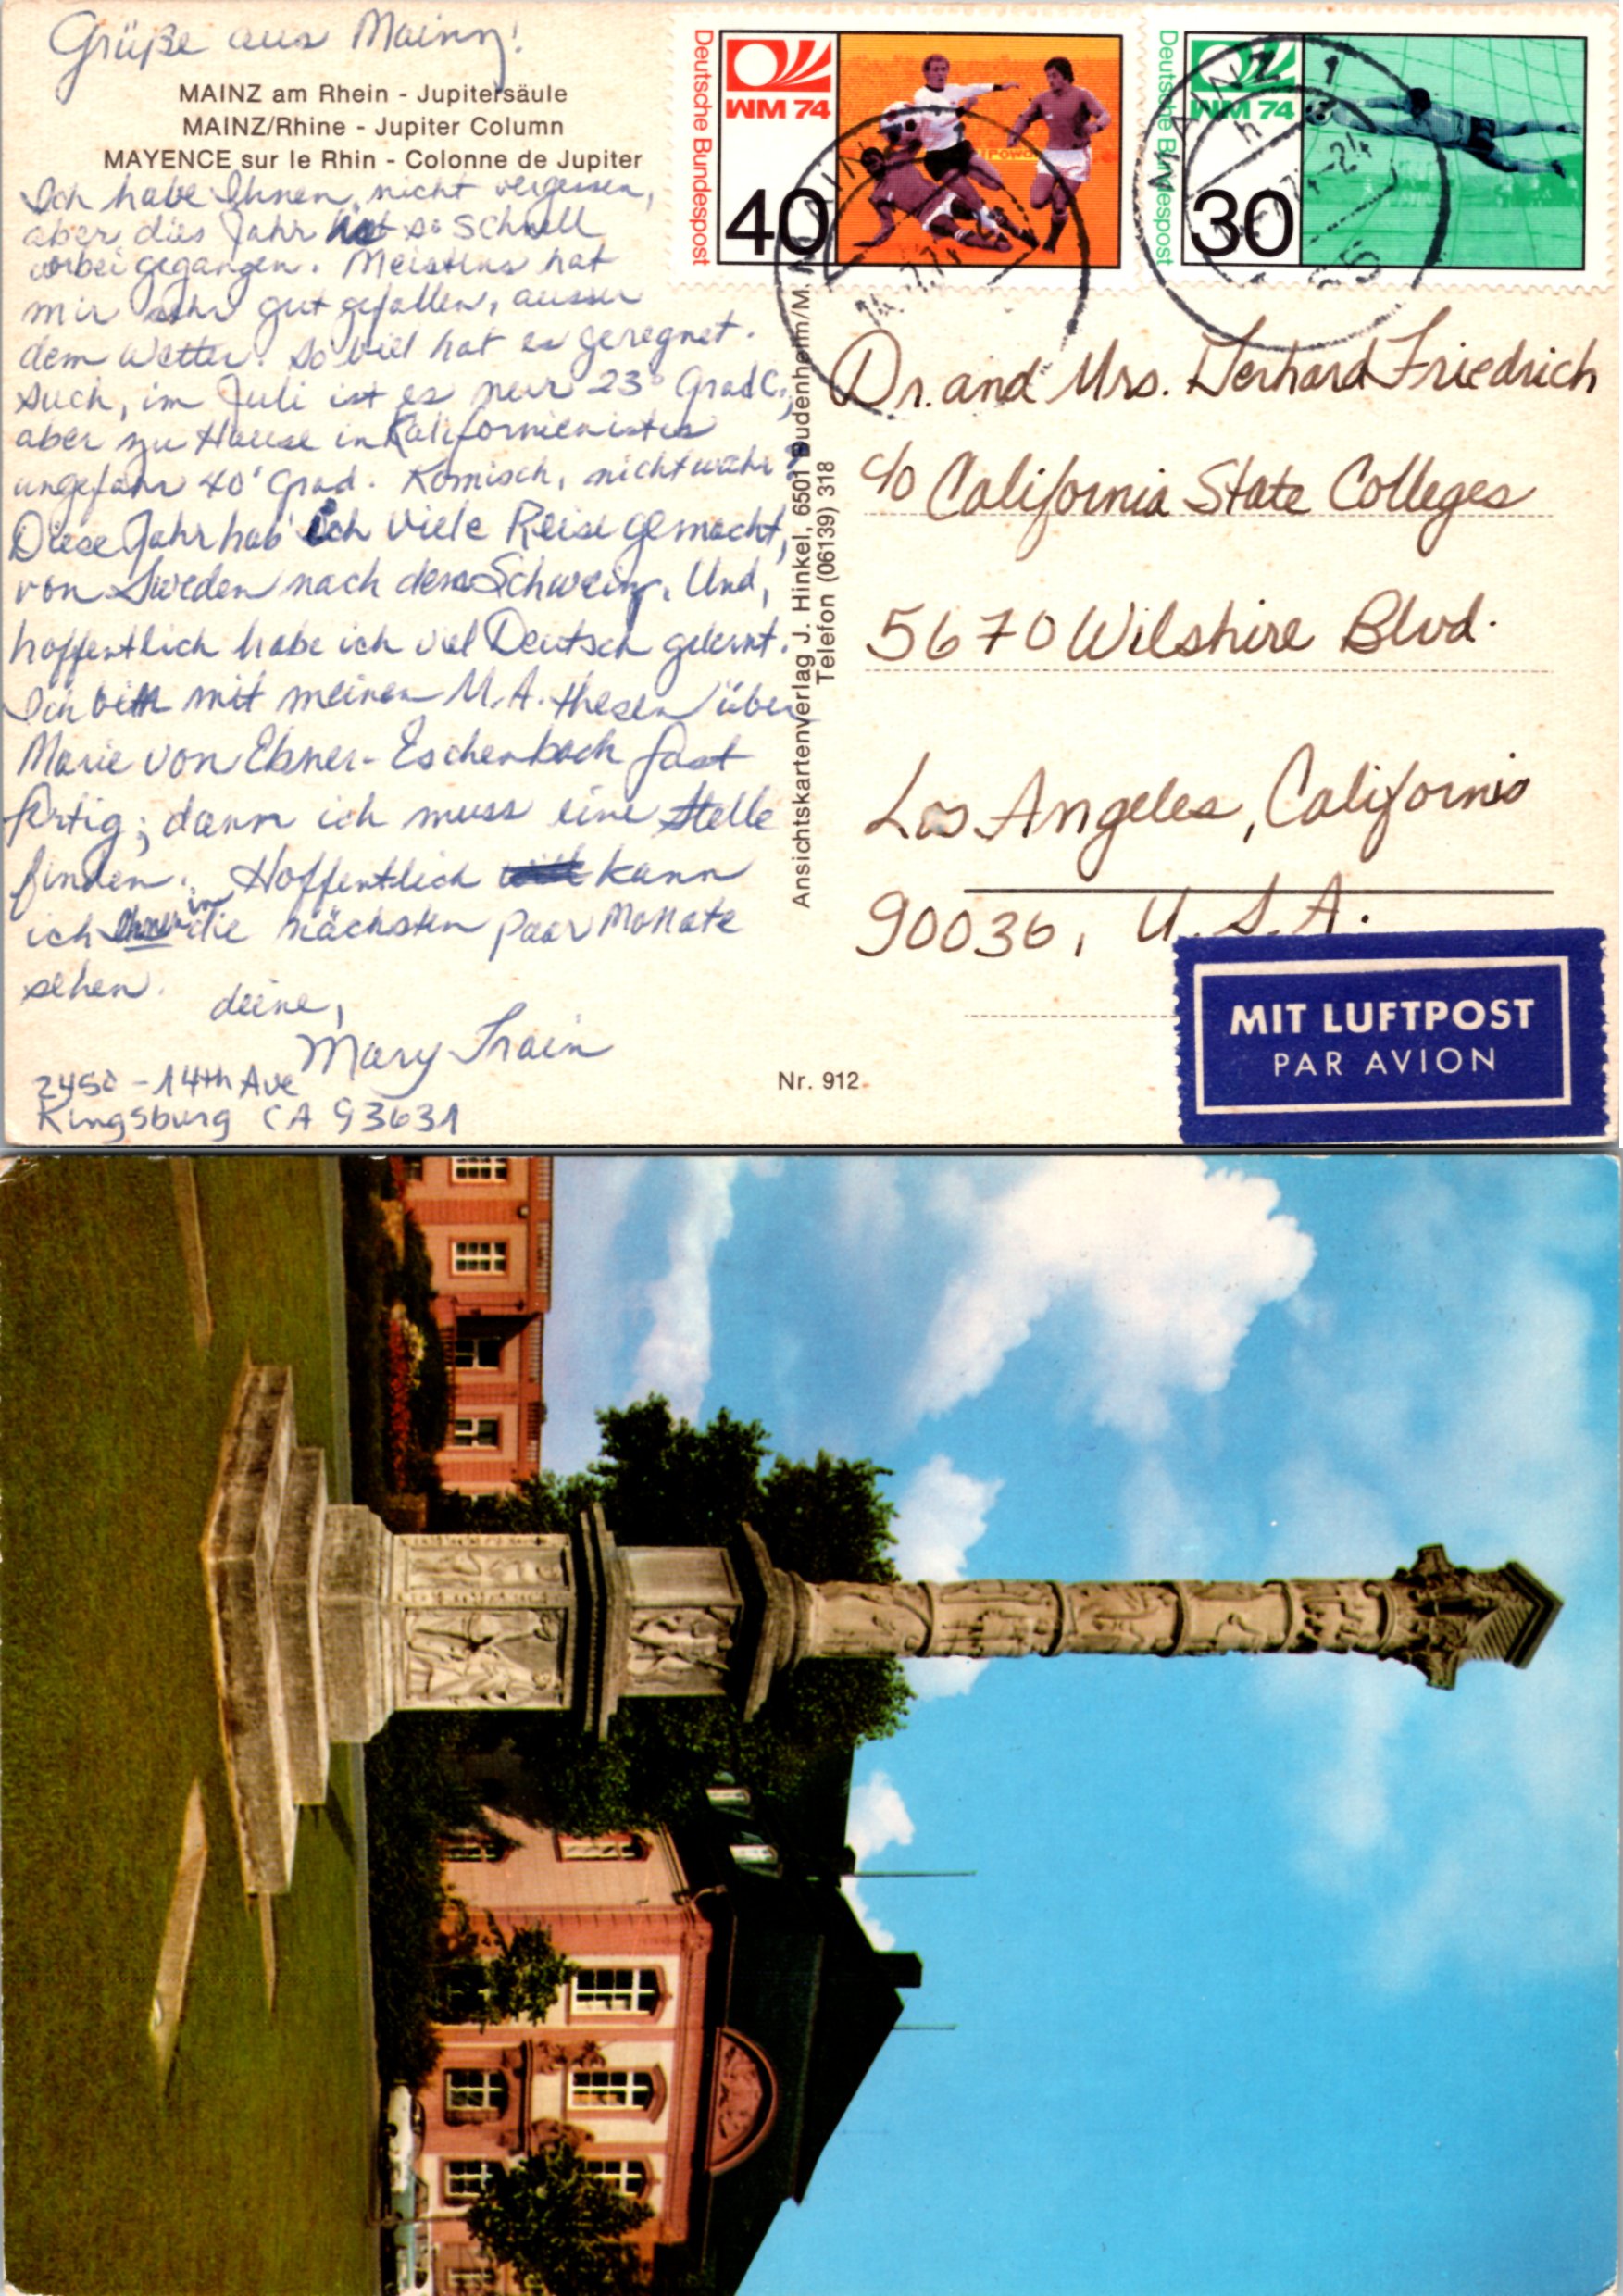 Grüße aus Mainz!
MAINZ am Rhein - Jupitersäule
MAINZ/Rhine - Jupiter Column
MAYENCE sur le Rhin - Colonne de Jupiter
Ich habe Ihnen nicht vergessen,
aber dies Jahr ist so schnell
vorbeigegangen. Meistens hat
mir sehr gut gefallen, ausser
dem Wetter. So viel hat es geregnet.
Auch, im Juli ist es nur 23° Grad C.,
aber zu Hause in Kalifornien ist es
ungefähr 40° Grad. Komisch, nicht wahr?
Diese Jahr hab' ich viele Reise gemacht,
von Sweden nach dem Schweiz. Und,
hoffentlich habe ich viel Deutsch gelernt.
Ich bin mit meinen M.A. thesen über
Marie von Ebner-Eschenbach fast
fertig; dann ich muss eine Stelle
finden. Hoffentlich kann
ich in die nächsten paar Monate
sehen.
deine,
Mary Train
2450 - 14th Ave
Kingsburg CA 93631
Deutsche Bundespost
WM 74
40
Deutsche Bundespost
WM 74
30
MAINZ 1
Dr. and Mrs. Gerhard Friedrich
c/o California State Colleges
5670 Wilshire Blvd.
Los Angeles, California
90036, U.S.A.
MIT LUFTPOST
PAR AVION
Ansichtskartenverlag J. Hinkel, 6501 Budenheim/M.
Telefon (06139) 318
Nr. 912